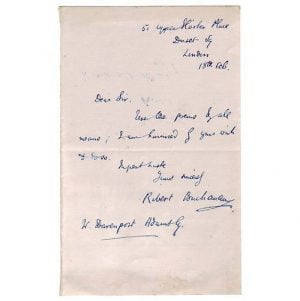 5, Upper Gloster Place
Dorset Sq
London
18th Feb.
Dear Sir,
Use the poems by all
means; I am honoured by your wish
to do so.
In great haste
Yours truly
Robert Buchanan
W. Davenport Adams Esq.